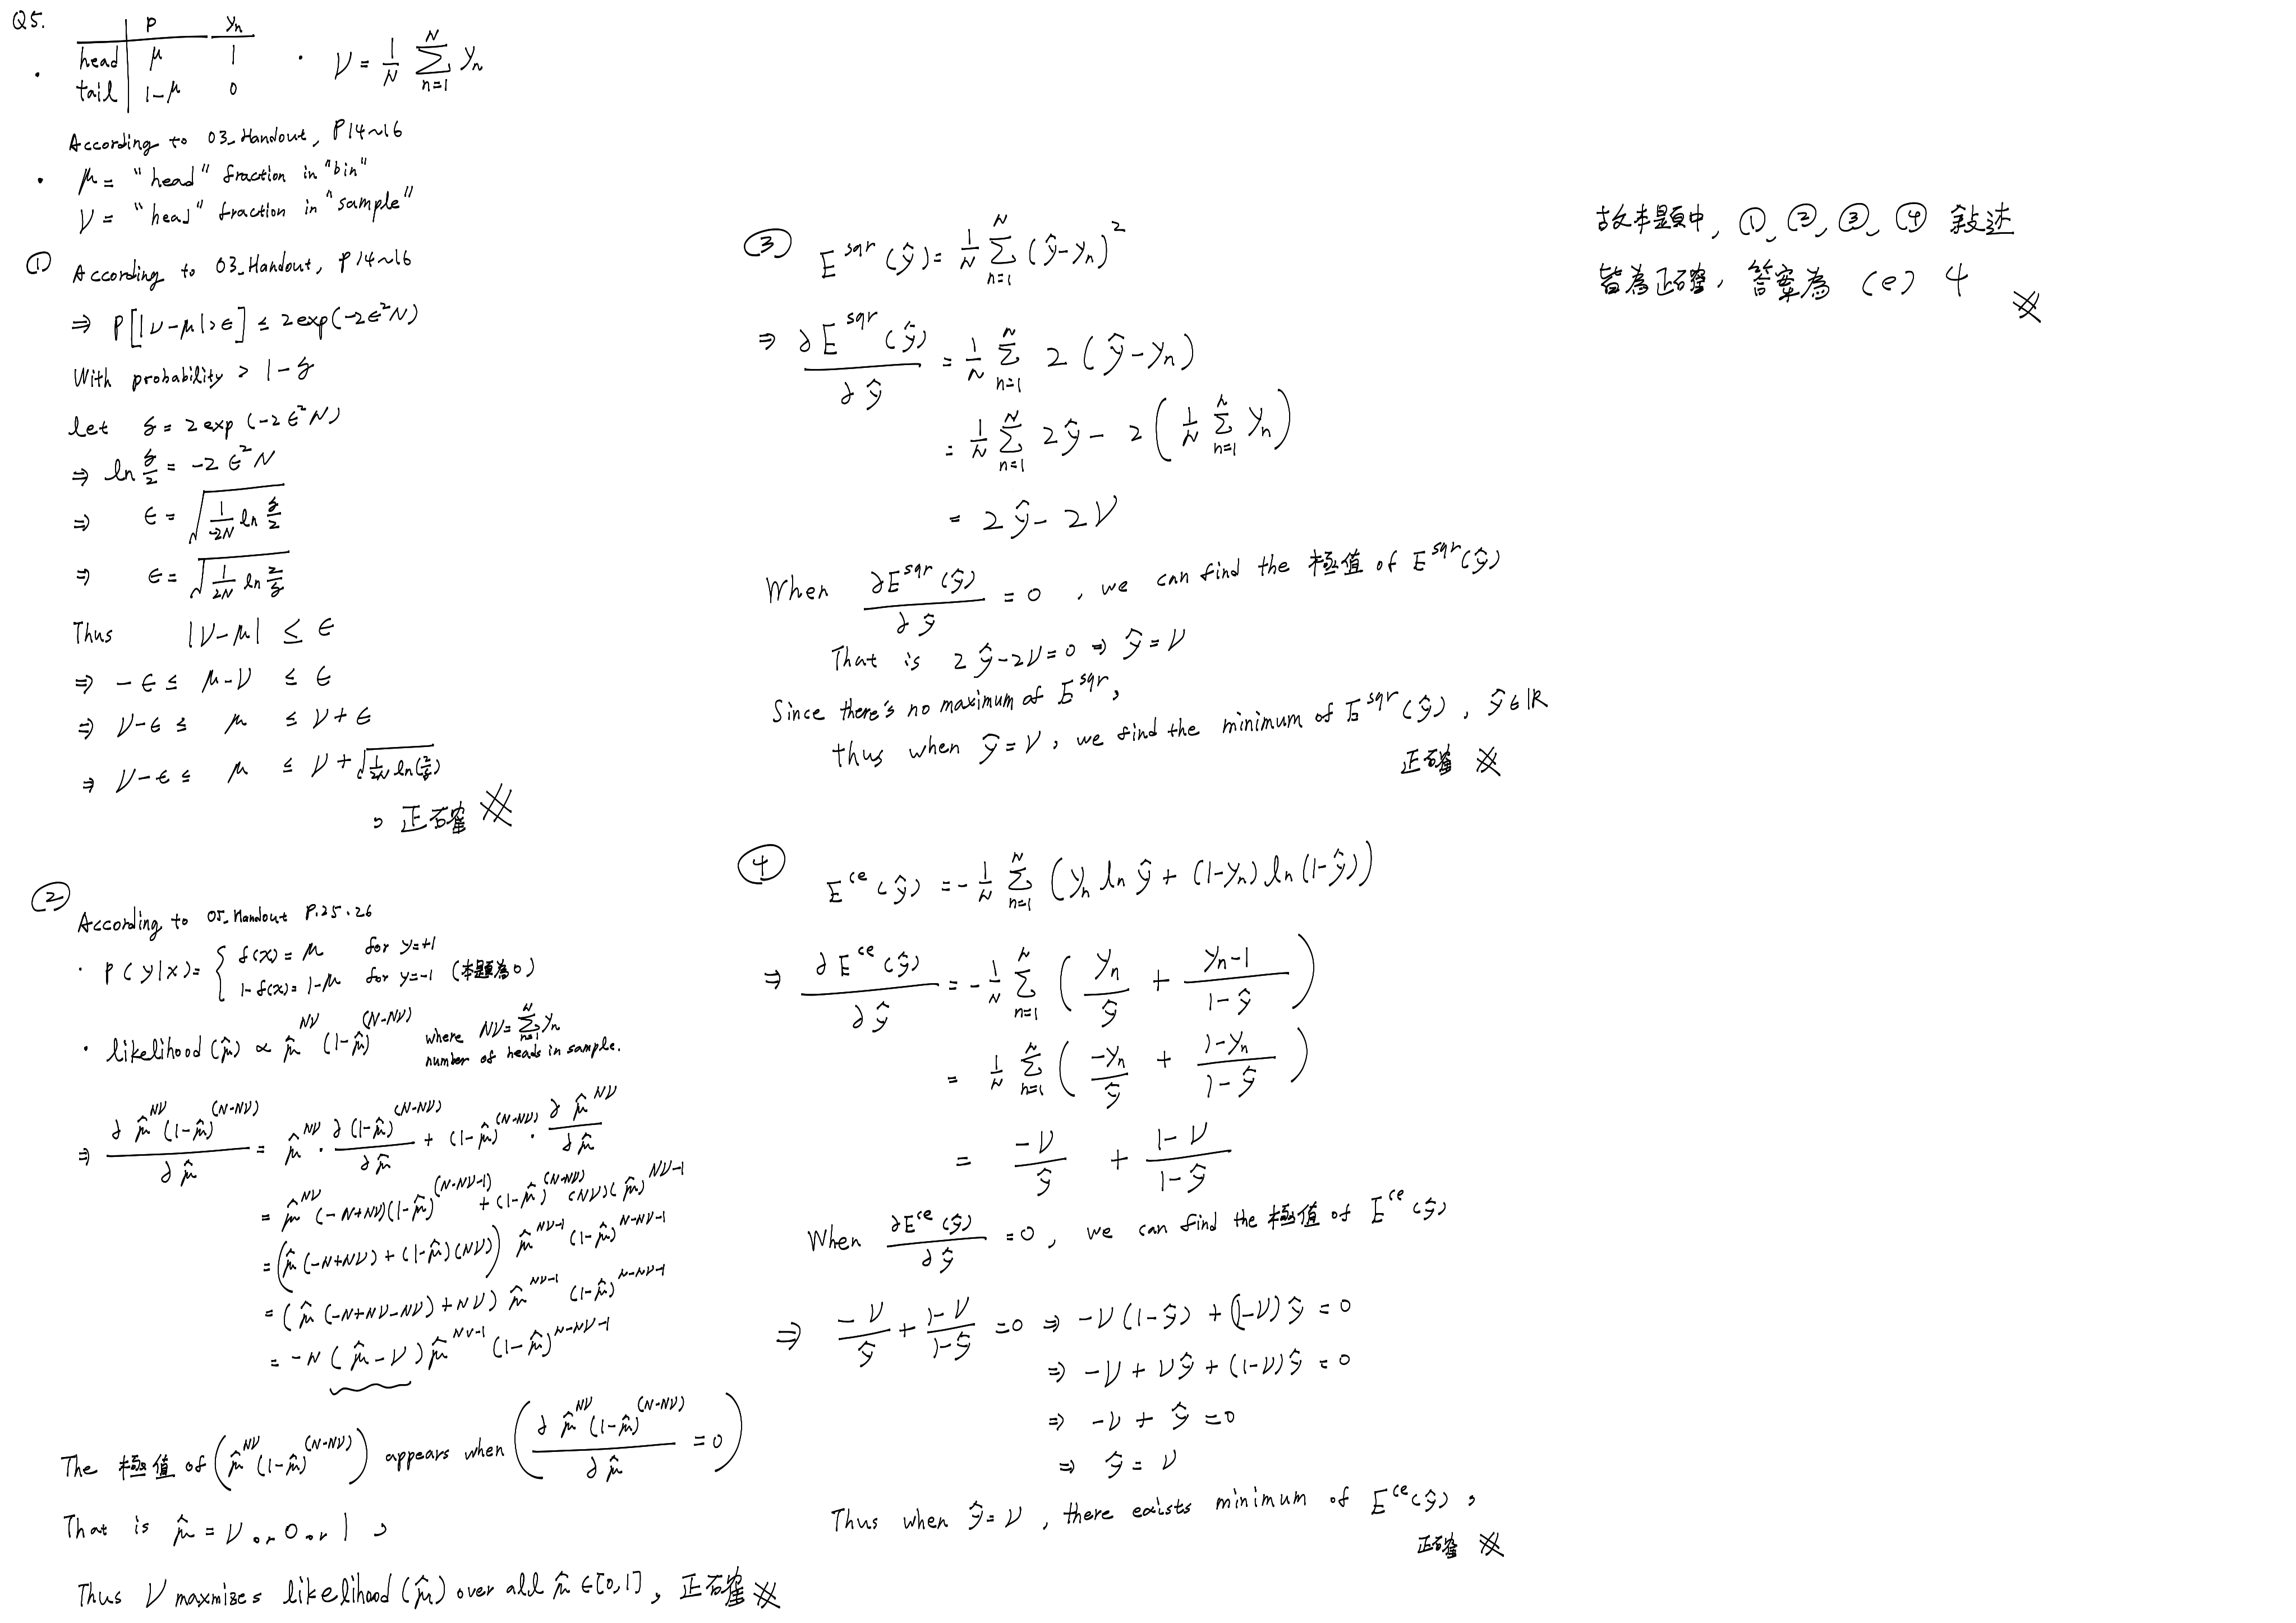 Q5.
P yn
head μ 1
tail 1-μ 0
· ν = 1/N Σ_{n=1}^{N} yn
According to 03_Handout, P14~16
· μ = "head" fraction in "bin"
ν = "head" fraction in "sample"
① According to 03_Handout, P14~16
⇒ P[|ν-μ|>ε] ≤ 2exp(-2ε²N)
With probability > 1-δ
let δ = 2exp(-2ε²N)
⇒ ln δ/2 = -2ε²N
⇒ ε = √(1/-2N ln δ/2)
⇒ ε = √(1/2N ln 2/δ)
Thus |ν-μ| ≤ ε
⇒ -ε ≤ μ-ν ≤ ε
⇒ ν-ε ≤ μ ≤ ν+ε
⇒ ν-ε ≤ μ ≤ ν+√(1/2N ln(2/δ))
，正確 ※
② According to 05_Handout P.25.26
· P(y|x) = { f(x) = μ for y=+1
1-f(x) = 1-μ for y=-1 (本題為0)
· likelihood(μ̂) ∝ μ̂^{Nν} (1-μ̂)^{(N-Nν)} where Nν = Σ_{n=1}^{N} yn
number of heads in sample.
⇒ ∂ μ̂^{Nν}(1-μ̂)^{(N-Nν)} / ∂μ̂ = μ̂^{Nν} · ∂(1-μ̂)^{(N-Nν)} / ∂μ̂ + (1-μ̂)^{(N-Nν)} · ∂ μ̂^{Nν} / ∂μ̂
= μ̂^{Nν} (-N+Nν)(1-μ̂)^{(N-Nν-1)} + (1-μ̂)^{(N-Nν)} (Nν)(μ̂)^{Nν-1}
= (μ̂(-N+Nν) + (1-μ̂)(Nν)) μ̂^{Nν-1} (1-μ̂)^{N-Nν-1}
= (μ̂(-N+Nν-Nν)+Nν) μ̂^{Nν-1} (1-μ̂)^{N-Nν-1}
= -N (μ̂-ν) μ̂^{Nν-1} (1-μ̂)^{N-Nν-1}
The 極值 of (μ̂^{Nν} (1-μ̂)^{(N-Nν)}) appears when (∂ μ̂^{Nν}(1-μ̂)^{(N-Nν)} / ∂μ̂ = 0)
That is μ̂ = ν or 0 or 1 ，
Thus ν maxmizes likelihood(μ̂) over all μ̂ ∈ [0,1]，正確 ※
③ E^{sqr}(ŷ) = 1/N Σ_{n=1}^{N} (ŷ-yn)²
⇒ ∂E^{sqr}(ŷ) / ∂ŷ = 1/N Σ_{n=1}^{N} 2(ŷ-yn)
= 1/N Σ_{n=1}^{N} 2ŷ - 2(1/N Σ_{n=1}^{N} yn)
= 2ŷ - 2ν
When ∂E^{sqr}(ŷ) / ∂ŷ = 0 , we can find the 極值 of E^{sqr}(ŷ)
That is 2ŷ-2ν=0 ⇒ ŷ=ν
Since there's no maximum of E^{sqr},
thus when ŷ=ν, we find the minimum of E^{sqr}(ŷ), ŷ∈ℝ
正確 ※
④ E^{ce}(ŷ) = -1/N Σ_{n=1}^{N} (yn ln ŷ + (1-yn) ln(1-ŷ))
⇒ ∂E^{ce}(ŷ) / ∂ŷ = -1/N Σ_{n=1}^{N} (yn/ŷ + yn-1/1-ŷ)
= 1/N Σ_{n=1}^{N} (-yn/ŷ + 1-yn/1-ŷ)
= -ν/ŷ + 1-ν/1-ŷ
When ∂E^{ce}(ŷ) / ∂ŷ = 0, we can find the 極值 of E^{ce}(ŷ)
⇒ -ν/ŷ + 1-ν/1-ŷ = 0 ⇒ -ν(1-ŷ) + (1-ν)ŷ = 0
⇒ -ν + νŷ + (1-ν)ŷ = 0
⇒ -ν + ŷ = 0
⇒ ŷ = ν
Thus when ŷ=ν, there exists minimum of E^{ce}(ŷ)，
正確 ※
故本題中，①、②、③、④ 敘述
皆為正確，答案為 (e) 4 ※